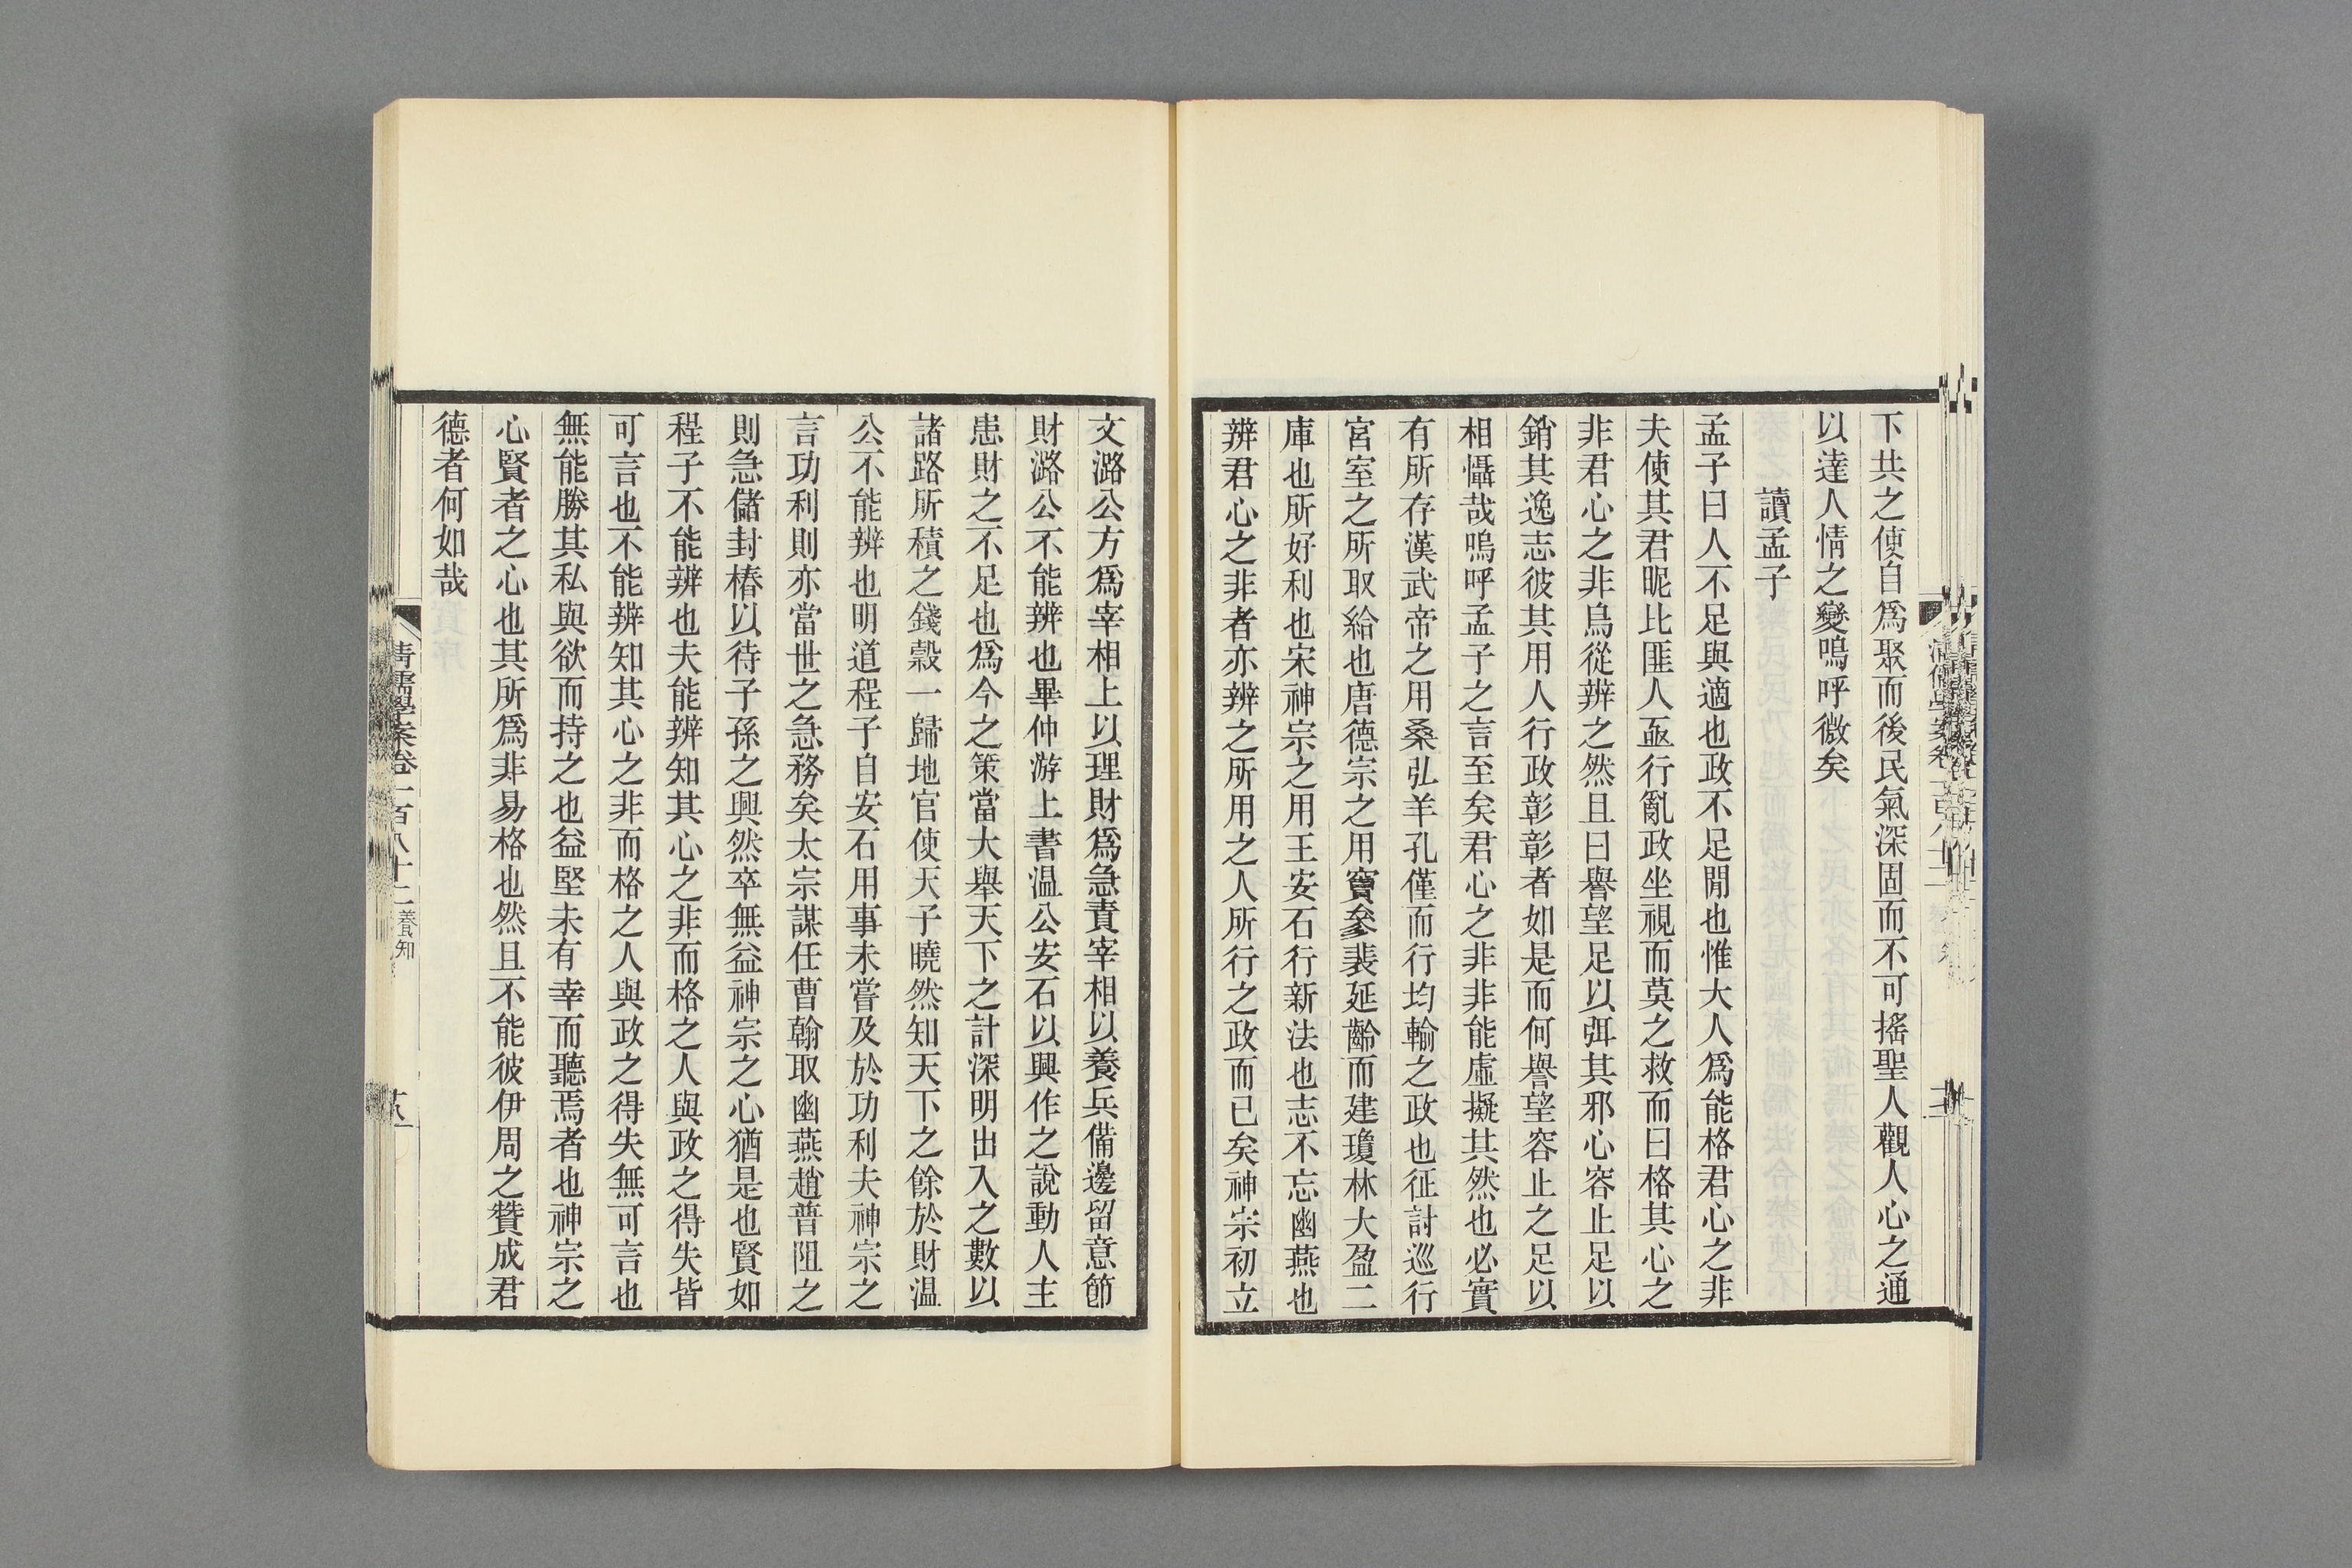 下共之使自爲聚而後民氣深固而不可搖聖人觀人心之通
以達人情之變嗚呼微矣
讀孟子
孟子曰人不足與適也政不足閒也惟大人爲能格君心之非
夫使其君昵比匪人亟行亂政坐視而莫之救而曰格其心之
非君心之非烏從辨之然且曰譽望足以弭其邪心容止足以
銷其逸志彼其用人行政彰彰者如是而何譽望容止之足以
相懾哉嗚呼孟子之言至矣君心之非非能虛擬其然也必實
有所存漢武帝之用桑弘羊孔僅而行均輸之政也征討巡行
宮室之所取給也唐德宗之用竇參裴延齡而建瓊林大盈二
庫也所好利也宋神宗之用王安石行新法也志不忘幽燕也
辨君心之非者亦辨之所用之人所行之政而已矣神宗初立
文潞公方爲宰相上以理財爲急責宰相以養兵備邊留意節
財潞公不能辨也畢仲游上書温公安石以興作之說動人主
患財之不足也爲今之策當大舉天下之計深明出入之數以
諸路所積之錢穀一歸地官使天子曉然知天下之餘於財温
公不能辨也明道程子自安石用事未嘗及於功利夫神宗之
言功利則亦當世之急務矣太宗謀任曹翰取幽燕趙普阻之
則急儲封樁以待子孫之興然卒無益神宗之心猶是也賢如
程子不能辨也夫能辨知其心之非而格之人與政之得失皆
可言也不能辨知其心之非而格之人與政之得失無可言也
無能勝其私與欲而持之也益堅未有幸而聽焉者也神宗之
心賢者之心也其所爲非易格也然且不能彼伊周之贊成君
德者何如哉
清儒學案卷一百八十二 養知